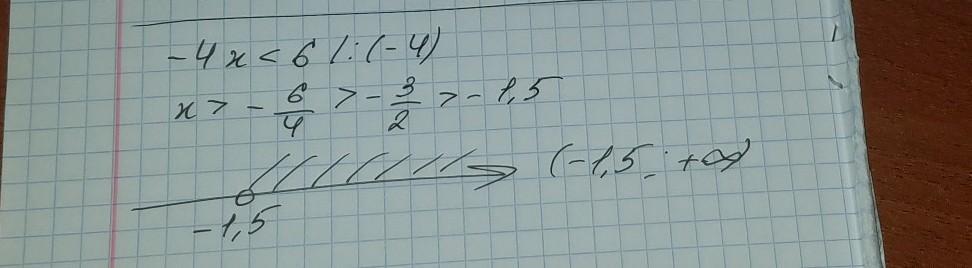 -4x < 6 |:(-4)
x > - 6/4 > - 3/2 > - 1,5
(-1,5; +∞)
-1,5